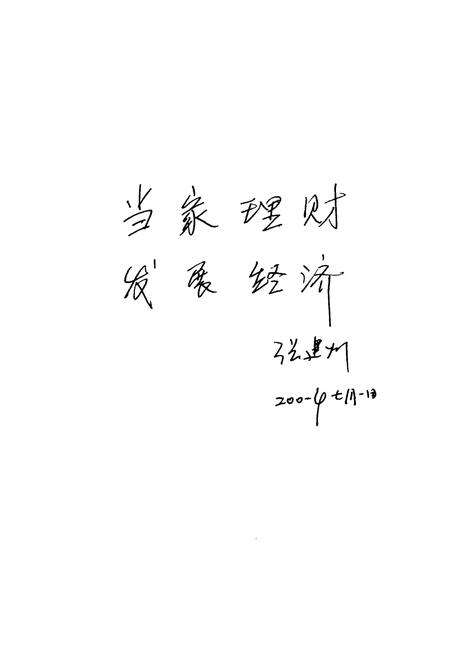 当家理财
发展经济
张建州
2004 七月一日